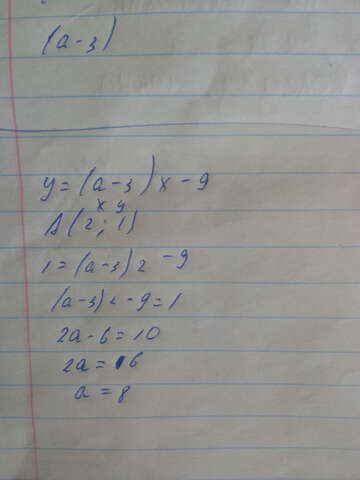 (a-3)
y=(a-3)x-9
x y
A(2;1)
1=(a-3)2-9
(a-3)2-9=1
2a-6=10
2a=16
a=8